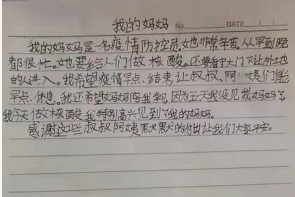 我的妈妈
No. DATE / /
我的妈妈是一名疫情防控员,她非常辛苦,从早到晚
都很忙。她要给人们做核酸,还要看大门不让外地
的人进入。我希望疫情早点结束,让叔叔、阿姨们能
早点休息。我还希望妈妈 我学习,因为五天我没见我妈妈了
我今天做核酸我特别高兴见到了我的妈妈。
感谢这些叔叔阿姨默默的付出让我们大家平安。